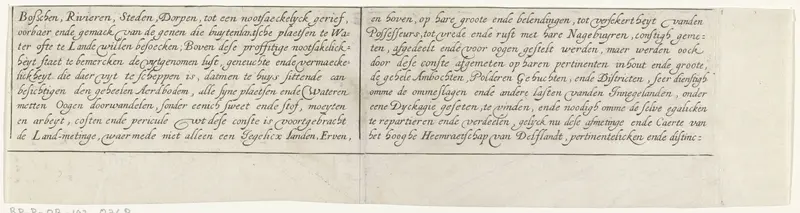 Bosschen, Rivieren, Steden, Dorpen, tot een nootsaeckelyck gerief,
oorbaer ende gemack van de genen die buytenlantsche plaetsen te Wa-
ter ofte te Lande willen besoecken. Boven dese proffitige nootsakelick-
heyt staet te bemercken de uytgenomen lust, geneuchte ende vermaecke-
lickheyt die daer uyt te scheppen is, datmen te huys sittende can
besichtigen den geheelen Aerdbodem, alle syne plaetsen ende Wateren
metten Oogen doorwandelen, sonder eenich sweet ende stof, moeyten
en arbeyt, costen ende pericule wt dese conste is voortgebracht
de Land-metinge, waer mede niet alleen een Iegelicx landen, Erven,
en hoven, op hare groote ende belendingen, tot versekertheyt vanden
Possesseurs, tot vrede ende rust met hare Nagebuyren, constigh geme-
ten, afgedeelt ende voor oogen gestelt werden, maer werden oock
door dese conste afgemeten op haren pertinenten inhout ende groote,
de geheele Ambochten, Polderen Gebuchten, ende Districten, seer dienstigh
omme de ommeslagen ende andere lasten vanden Innegelanden, onder
eene Dyckagie geseten, te vinden, ende noodigh omme de selve egalicken
te repartieren ende verdeelen, gelyck nu dese afmetinge ende Caerte van
het hooghe Heemraetschap van Delflandt, pertinentelicken ende distinc-